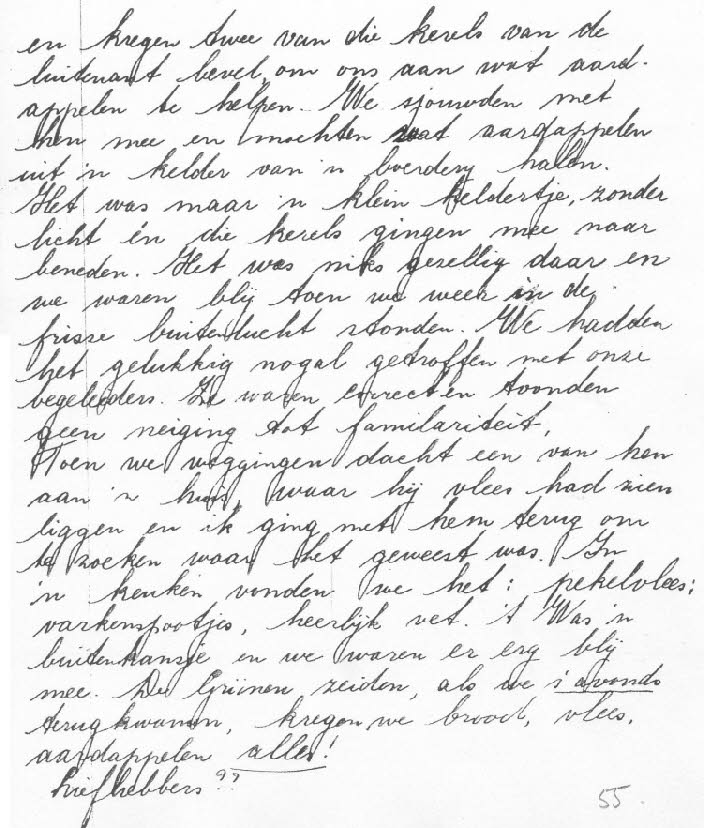 en kregen twee van die kerels van de
luitenant bevel, om ons aan wat aard-
appelen te helpen. We sjouwden met
hen mee en mochten wat aardappelen
uit 'n kelder van 'n boerdery halen.
Het was maar 'n klein keldertje, zonder
licht én die kerels gingen mee naar
beneden. Het was niks gezellig daar en
we waren blij toen we weer in de
frisse buitenlucht stonden. We hadden
het gelukkig nogal getroffen met onze
begeleiders. Ze waren correct en toonden
geen neiging tot familariteit.
Toen we weggingen dacht een van hen
aan 'n huis, waar hij vlees had zien
liggen en ik ging met hem terug om
te zoeken waar het geweest was. In
'n keuken vonden we het: pekelvlees;
varkenspootjes, heerlijk vet. 't Was 'n
buitenkansje en we waren er erg blij
mee. De Grünen zeiden, als we 's avonds
terugkwamen, kregen we brood, vlees,
aardappelen alles!
Liefhebbers??
55.